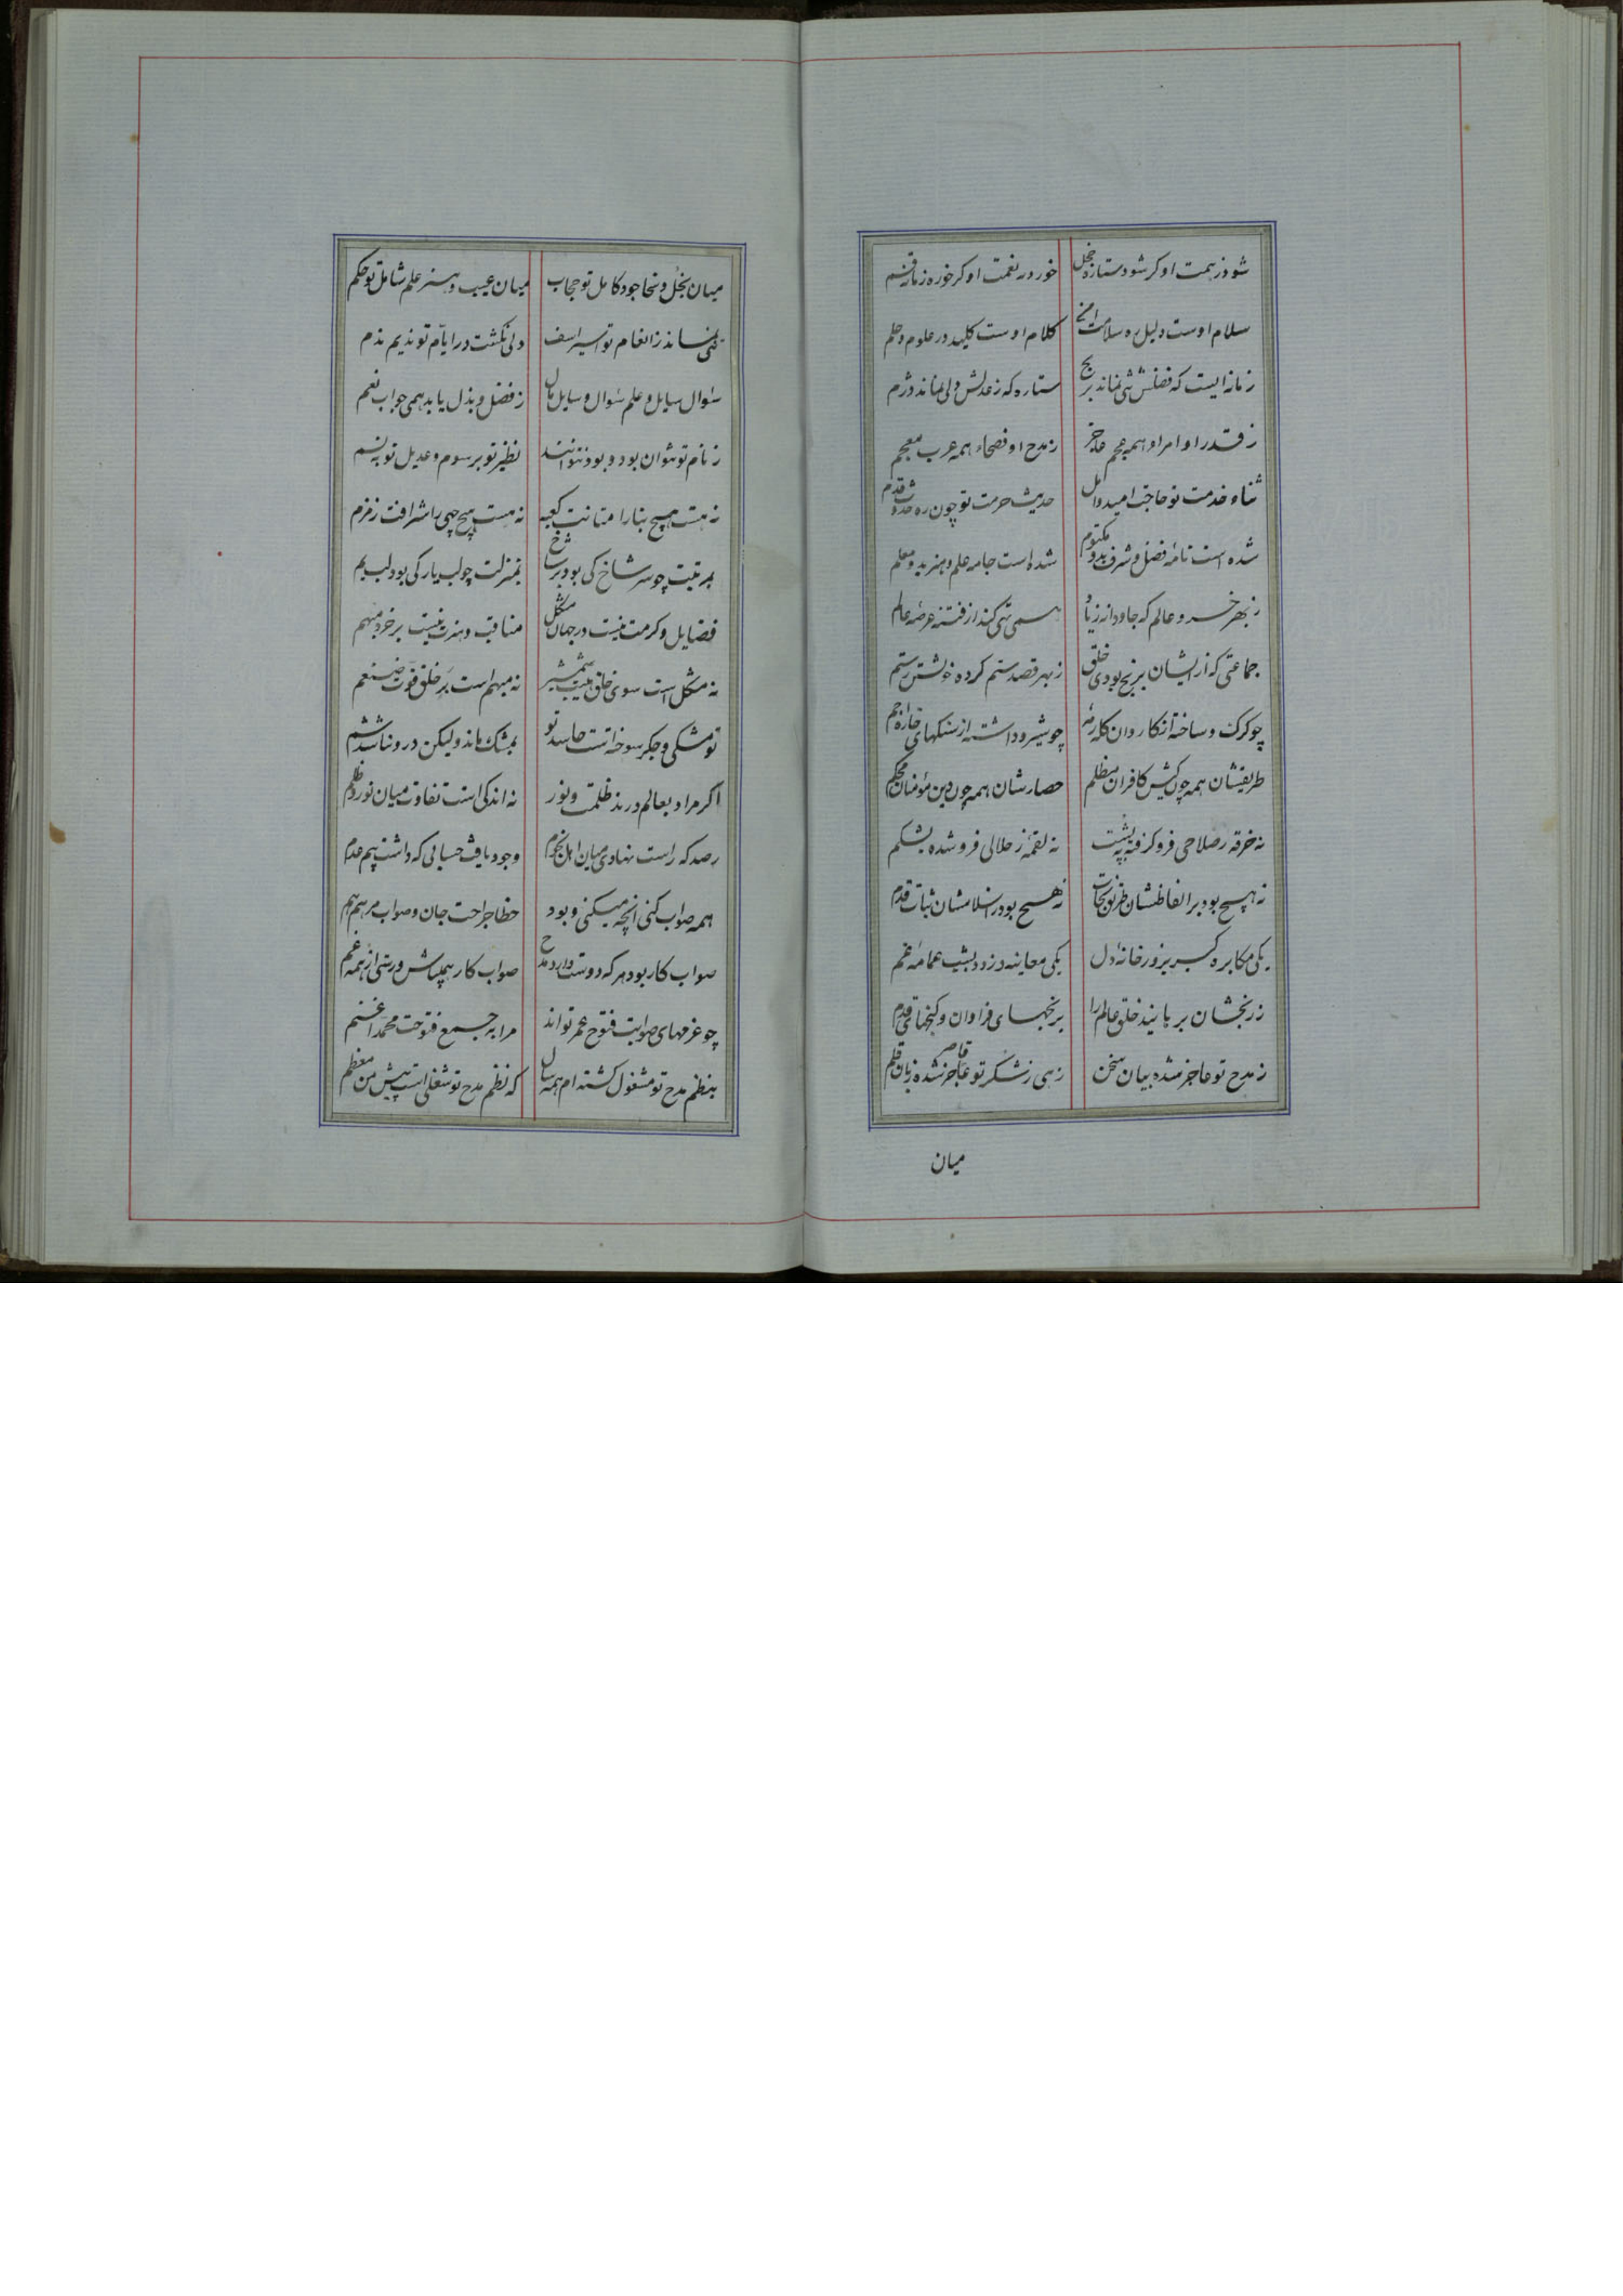 شود ز همت او کر شود ستاره خجل خورد ز نعمت او کر خورد زمانه قسم
سلام اوست دلیل ره سلامت کلام اوست کلید در علوم و حکم
زمانه ایست که فضلش نماند برنج ستاره که ز عدلش دلی نماند دژم
ز قدر او امراء همه عجم عاجز ز مدح او فصحاء همه عرب معجم
ثناء خدمت تو حاجب امید و امل حدیث حرمت تو چون ره حدوث قدم
شده است نامه فضل و شرف بدو مکتوم شده است جامه علم و هنر بدو معلم
ز بهر خسرو عالم که جاودانه زیاد همی تهی کند از فتنه عرصه عالم
جماعتی که از ایشان برنج بودی خلق ز بهر قصد ستم کرده خویشتن رستم
چو کرک و ساخته از کاروان کله رمه چو شیر و داشته از سنکهای خاره اجم
طریقشان همه چون کیش کافران مظلم حصارشان همه چون دین مؤمنان محکم
نه خرقه ز صلاحی فرو کرفته به پشت نه لقمه ز حلالی فرو شده بشکم
نه هیچ بود بر الفاظشان طریق نجات نه هیچ بود در اسلامشان ثبات قدم
یکی مکابره کسر بزور خانه دل یکی معاینه دزدد بشب عمامه عم
ز رنجشان برهانید خلق عالم را برنجهای فراوان و کنجهای قدم
ز مدح تو عاجز شده بیان سخن زهی ز شکر تو قاصر شده زبان قلم
میان
میان بخل و سخا جود کامل تو حجاب میان عیب و هنر علم شامل تو حکم
نماند ز انعام تو اسیر اسف ولی نکشت در ایام تو ندیم ندم
سؤال سایل و علم سؤال و سایل مال ز فضل و بذل یابد همی جواب نعم
ز نام تو نتوان بود و بود نتوانند نظیر تو برسوم و عدیل تو به شیم
نه هست هیچ بنا را متانت کعبه نه هست هیچ چهی را شرافت زمزم
بمرتبت چو سر شاخ کی بود بر شاخ بمنزلت چو لب یار کی بود لب یم
فضایل و کرمت نیست در جهان مشکل مناقب و هنرت نیست بر خرد مبهم
نه مشکل است سوی خلق هیبت شمشیر نه مبهم است بر خلق قوت ضیغم
تو مشکی و جکر سوخته است حاسد تو بمشک ماند ولیکن درو نباشد شم
اکر مراد بعالم درند ظلمت و نور نه اندکی است تفاوت میان نور و ظلم
رصد که راست نهادی میان اهل نجوم وجود یافت حسابی که داشت بیم عدم
همه صواب کنی آنچه میکنی و بود خطا جراحت جان و صواب مرهم هم
صواب کار بود هر که دوست دارد مدح صواب کار همی باش و رستی از همه غم
چو عزمهای صوابت فتوح عمر تواند مرا به جمع فتوحت محمدا غنم
بنظم مدح تو مشغول کشته ام همه سال که نظم مدح تو شغلی است پیش من معظم